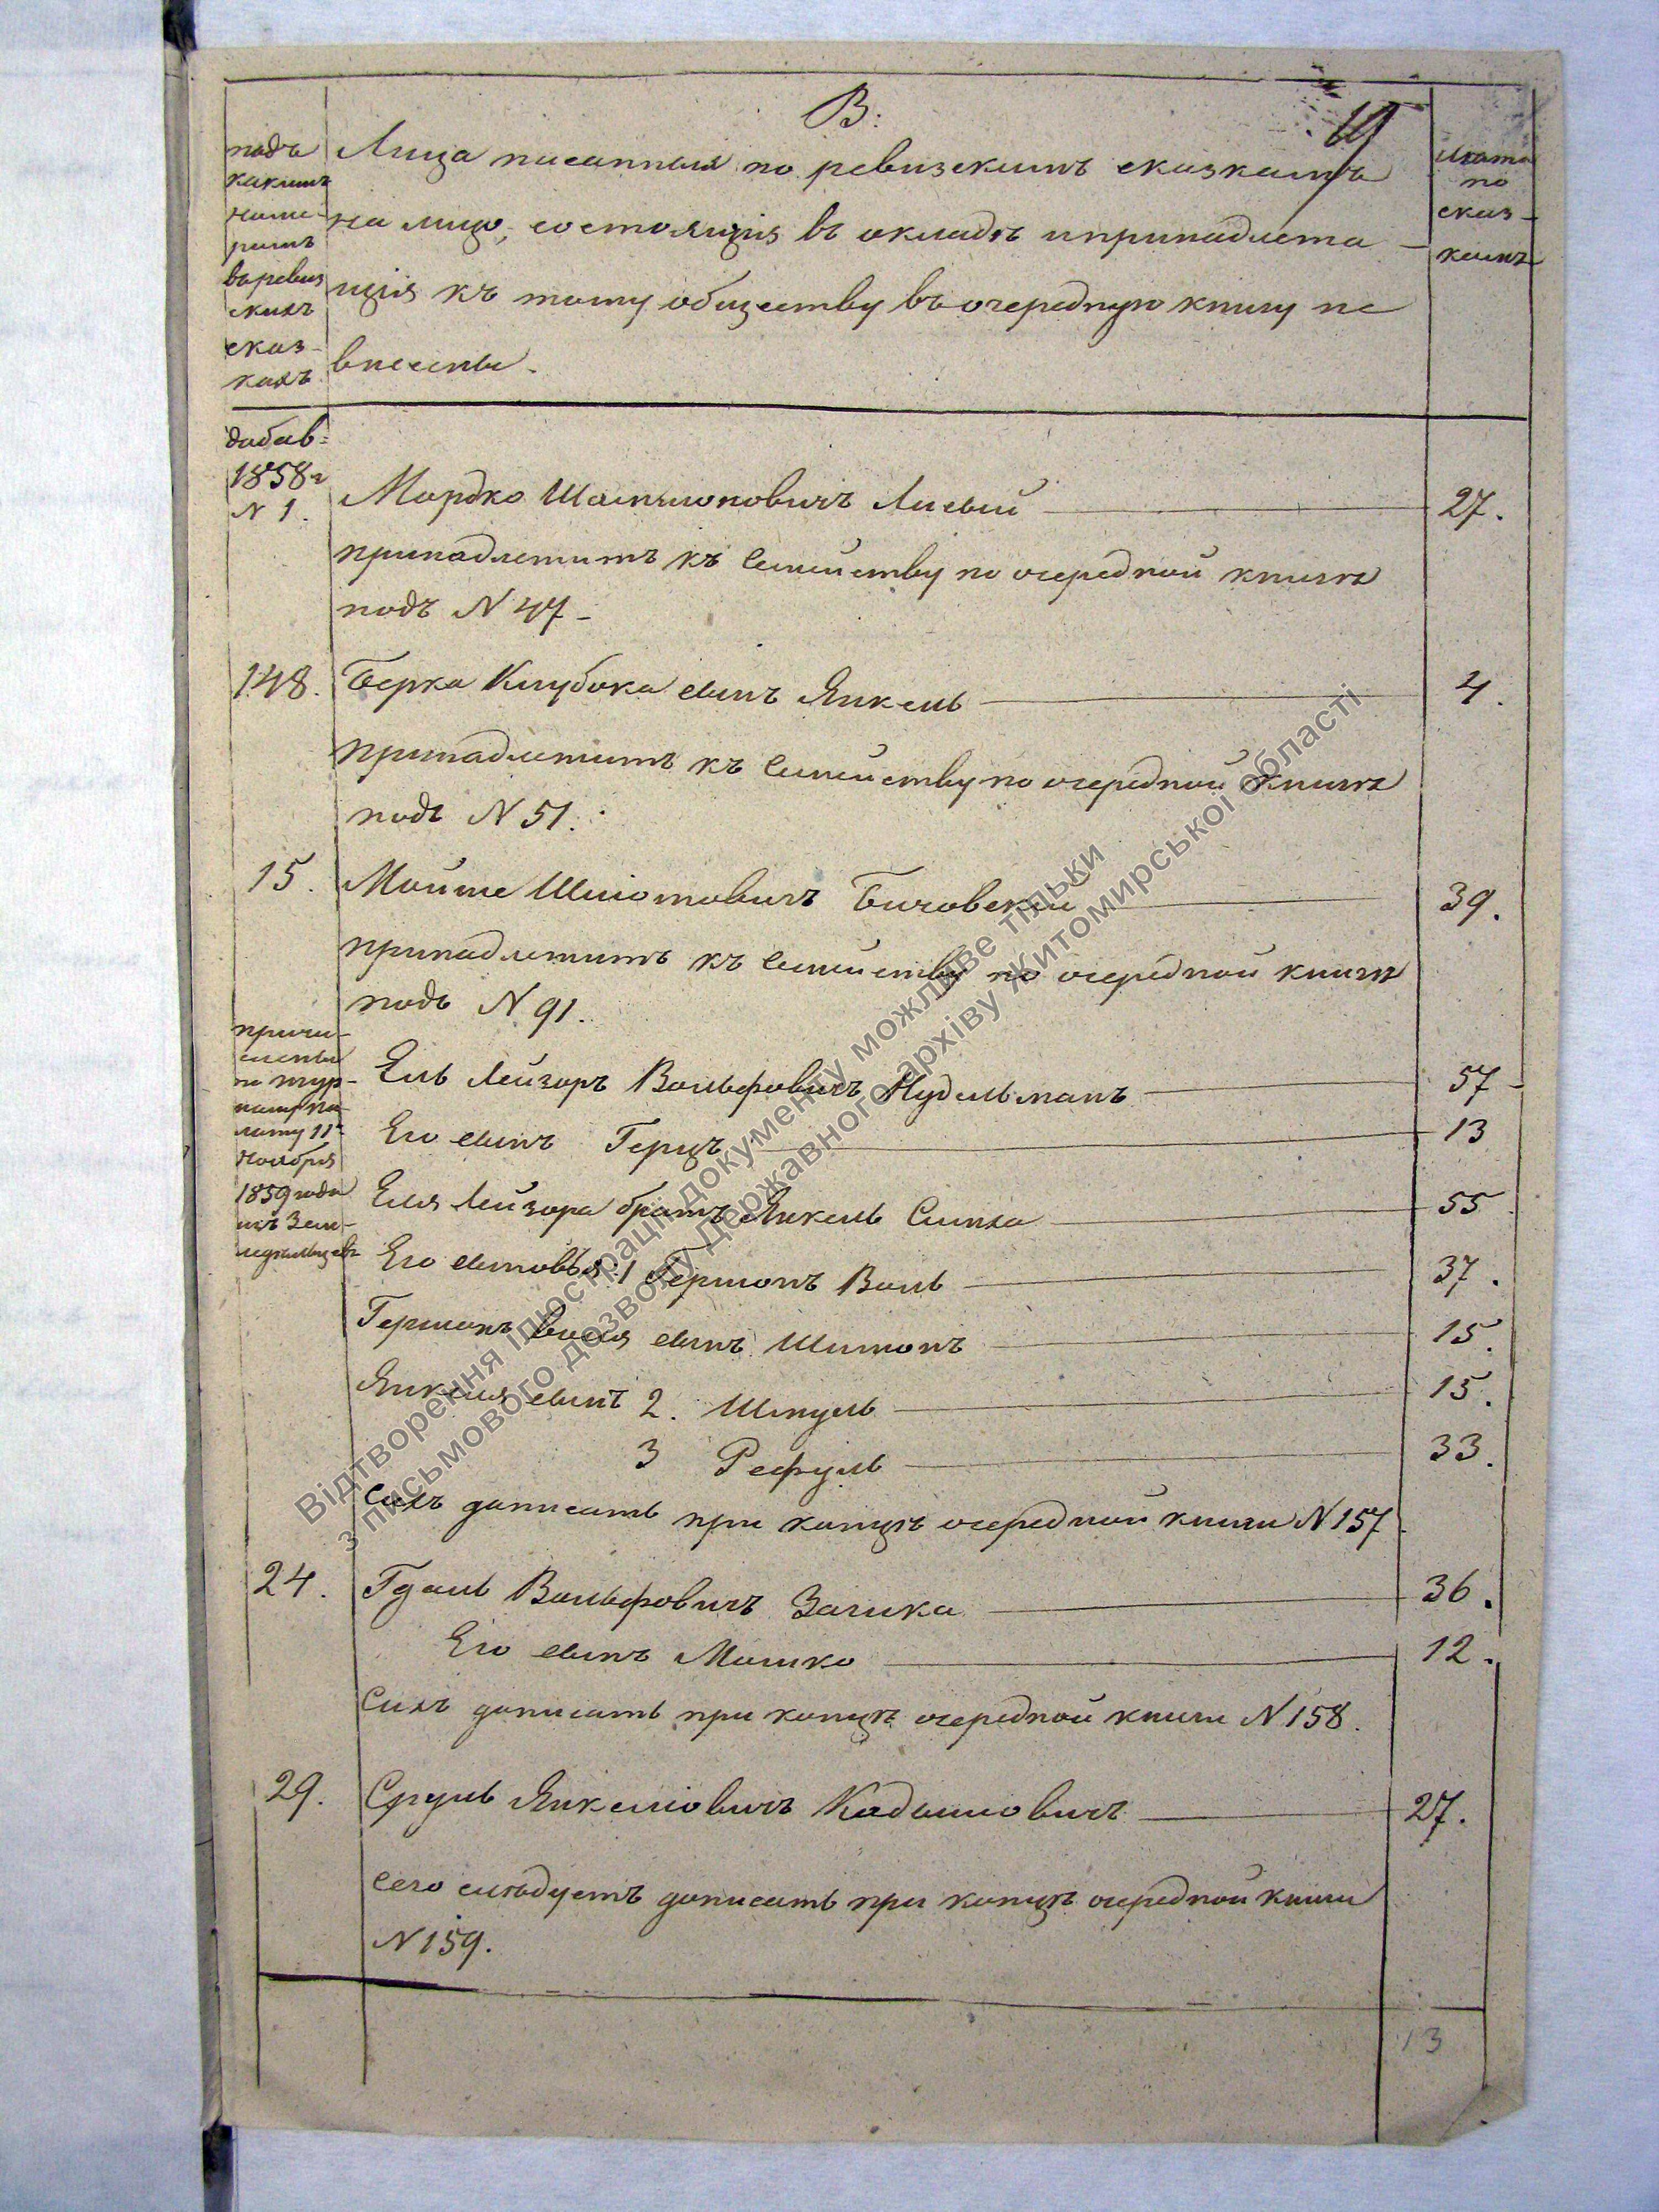 В:
подъ
какимъ
номе-
ромъ
въ ревиз
скихъ
сказ-
кахъ
Лица писанныя по ревизскимъ сказкамъ
на лицо, состоящія въ окладѣ и принадлежа-
щія къ тому обществу въ очередную книгу не
внесены.
лѣта
по
сказ-
камъ
добав=
1858 г
N 1.
Мордко Шамшоновичъ Лисый 27.
принадлежитъ къ семейству по очередной книгѣ
подъ N 47-
148. Берка Клубока сынъ Янкель 4.
принадлежитъ къ семейству по очередной книгѣ
подъ N 51.
15. Мойше Шліомовичъ Бичовский 39.
принадлежитъ къ семейству по очередной книгѣ
подъ N 91.
причи-
слены
по жур-
налу па-
латы 11
Ноября
1859 года
изъ Зем-
ледельцевъ
Ель Лейзоръ Вольфовичъ Нудельманъ 57-
Его сынъ Герцъ 13
Еля Лейзора братъ Янкель Симха 55
Его сыновья: 1 Гершонъ Воль 37.
Гершонъ Воля сынъ Шимонъ 15.
Янкеля сынъ 2. Шмуль 15.
3 Рефуль 33.
Сихъ дописать при концѣ очередной книги N 157
24. Гдаль Вольфовичъ Заика 36.
Его сынъ Мошко 12.
Сихъ дописать при концѣ очередной книги N 158.
29. Сруль Янкеліовичъ Кадышовичъ 27.
сего слѣдуетъ дописать при концѣ очередной книги
N 159.
13
Відтворення ілюстрації документу можливе тільки
з письмового дозволу Державного архіву Житомирської області